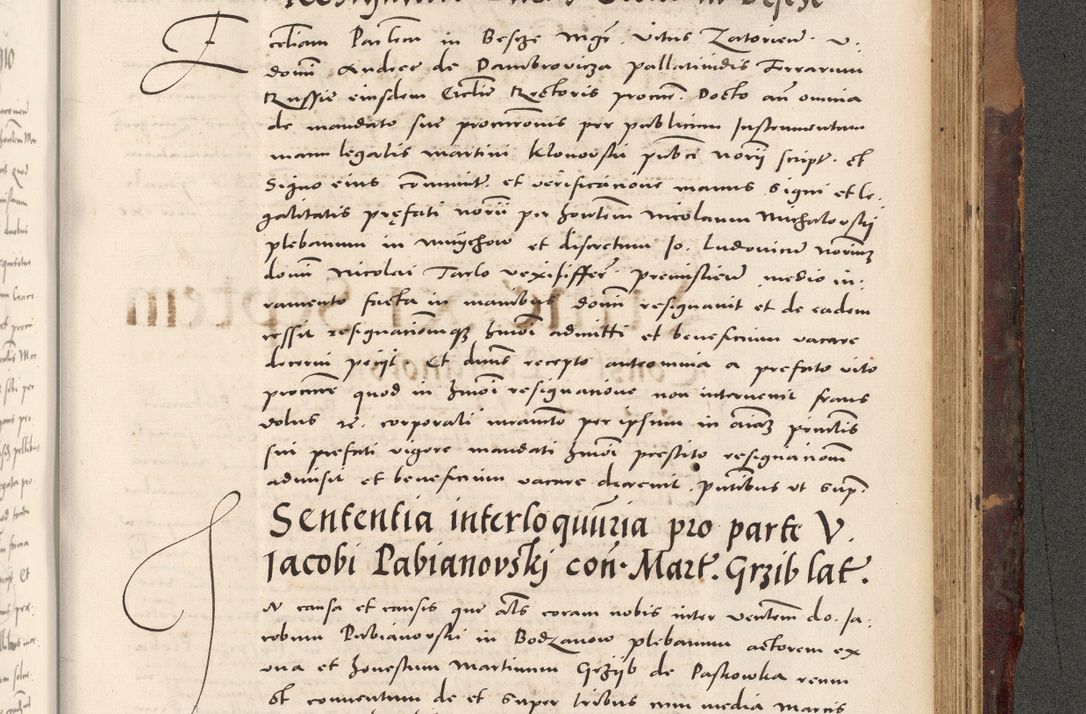 Ecclesiam Par̄lem in Besche Mgr. Vitus Zatorien̄. V.
domini Andree de Dambrovicza pallatinidis Terrarum
Russie eiusdem Ecclie Rectoris procur. Docto an̄ omnia
de mandato sue procurōnis per publicum Instrumentum
manu legalis Martini Klonovski publici norii script. et
Signo eius com̄unit. et verificatione manus signi et le,
galitatis prefati norii per honēm Nicolaum Michalovskij
plebanum in et discretum Jo. Ludovicum norium
domini Nicolai Tarlo vexiliffer. Premislien̄ medio iu,
ramento facta in manibus domini resignavit et de eadem
cessit resignationemq₃ hm̄oi admitti et beneficium vacare
decerni peciit. Et dnus recepto anteomnia a prefato vito
procur̄e quod in hm̄oi resignatione non intervenit fraus
dolus &c. corporali iuramēto per ipsum in aīaz prin̄tis
sui prefati vigore mandati hm̄oi prestito resignationem
admisit et beneficium vacare decrevit. Pn̄tibus ut sup.
Sententia interloquūria pro parte V.
Jacobi Pabianovskj con. Mart. Grzib lat.
IN causa et causis que al̄s coram nobis inter ven̄tem do. Ja,
cobum Pabianovski in Bodzanow plebanum actorem ex
una et honestum Martinum Grzÿb de Paskowka reum
et conventum de et super tribus cum media Marcis